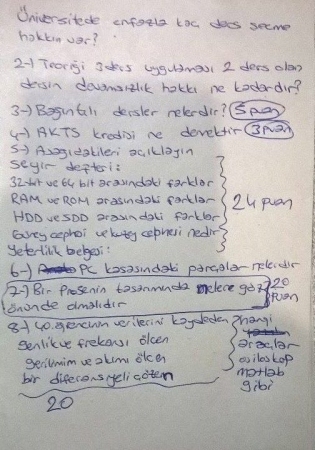 Üniversitede enfazla kaç ders seçme
hakkın var?
2-) Teoriği 3 ders uygulaması 2 ders olan
dersin devamsızlık hakkı ne kadardır?
3-) Bağıntılı dersler nelerdir? 5 puan
4-) AKTS kredisi ne demektir 3 puan
5-) Aşağıdakileri açıklayın
Seyir defteri:
32 bit ve 64 bit arasındaki farklar
RAM ve ROM arasındaki farklar
24 puan
HDD ve SDD arasındaki farklar
Güney cephesi ve kuzey cephesi nedir
Yeterlilik belgesi:
6-) PC kasasındaki parçalar nelerdir
7-) Bir Prosenin tasarımında nelere göz
20 puan
önünde olmalıdır
8-) 40. gencnun verilerini kaydeden
genlik ve frekansı ölçen
gerilimim ve akımı ölçen
bir diferansiyeli çözen
hangi
araçlar
osiloskop
matlab
gibi
20